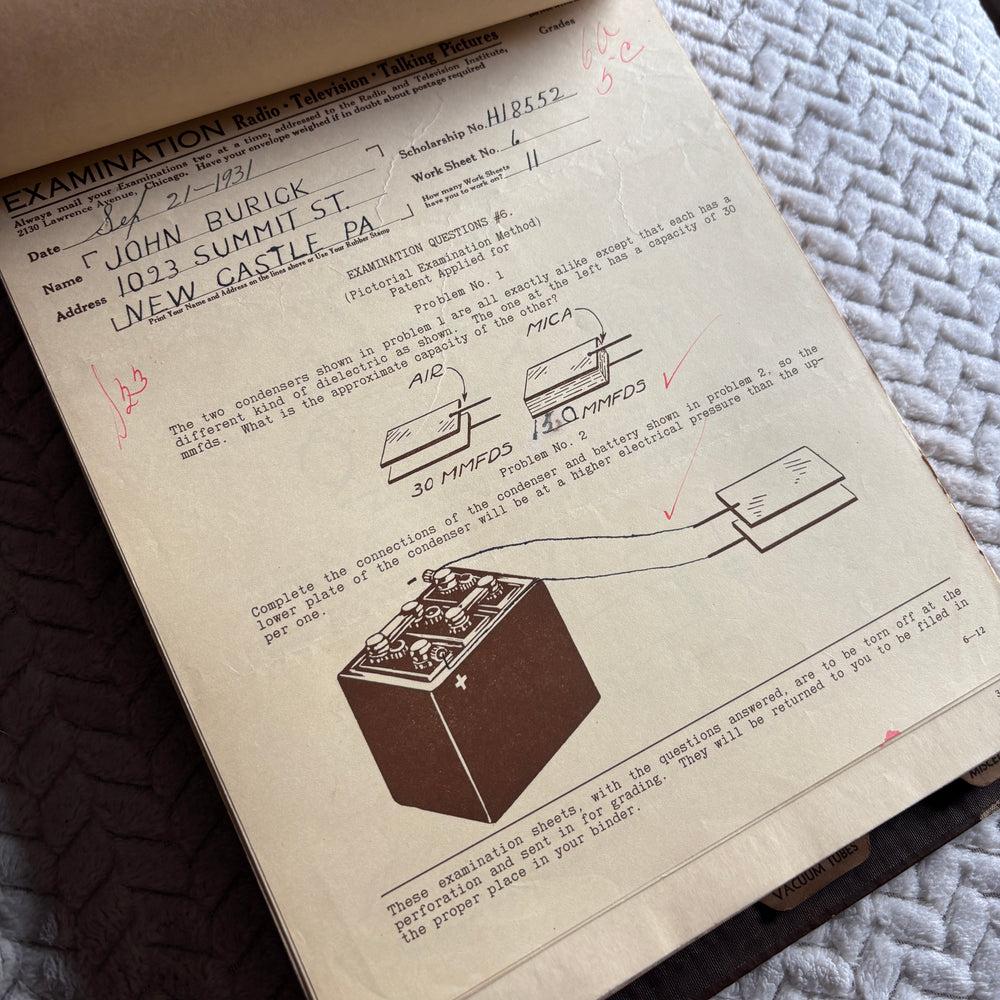 Grades
6a
5-C
EXAMINATION Radio · Television · Talking Pictures
Always mail your Examinations two at a time, addressed to the Radio and Television Institute,
2130 Lawrence Avenue, Chicago. Have your envelope weighed if in doubt about postage required
Date Sep 21-1931
Scholarship No. H18552
Name JOHN BURICK
Work Sheet No. 6
Address 1023 SUMMIT ST.
How many Work Sheets
have you to work on? 11
NEW CASTLE PA
Print Your Name and Address on the lines above or Use Your Rubber Stamp
EXAMINATION QUESTIONS #6.
(Pictorial Examination Method)
Patent Applied for
Problem No. 1
The two condensers shown in problem 1 are all exactly alike except that each has a
different kind of dielectric as shown. The one at the left has a capacity of 30
mmfds. What is the approximate capacity of the other?
AIR
MICA
30 MMFDS
MMFDS
Problem No. 2
Complete the connections of the condenser and battery shown in problem 2, so the
lower plate of the condenser will be at a higher electrical pressure than the up-
per one.
-
+
6-12
These examination sheets, with the questions answered, are to be torn off at the
perforation and sent in for grading. They will be returned to you to be filed in
the proper place in your binder.
VACUUM TUBES